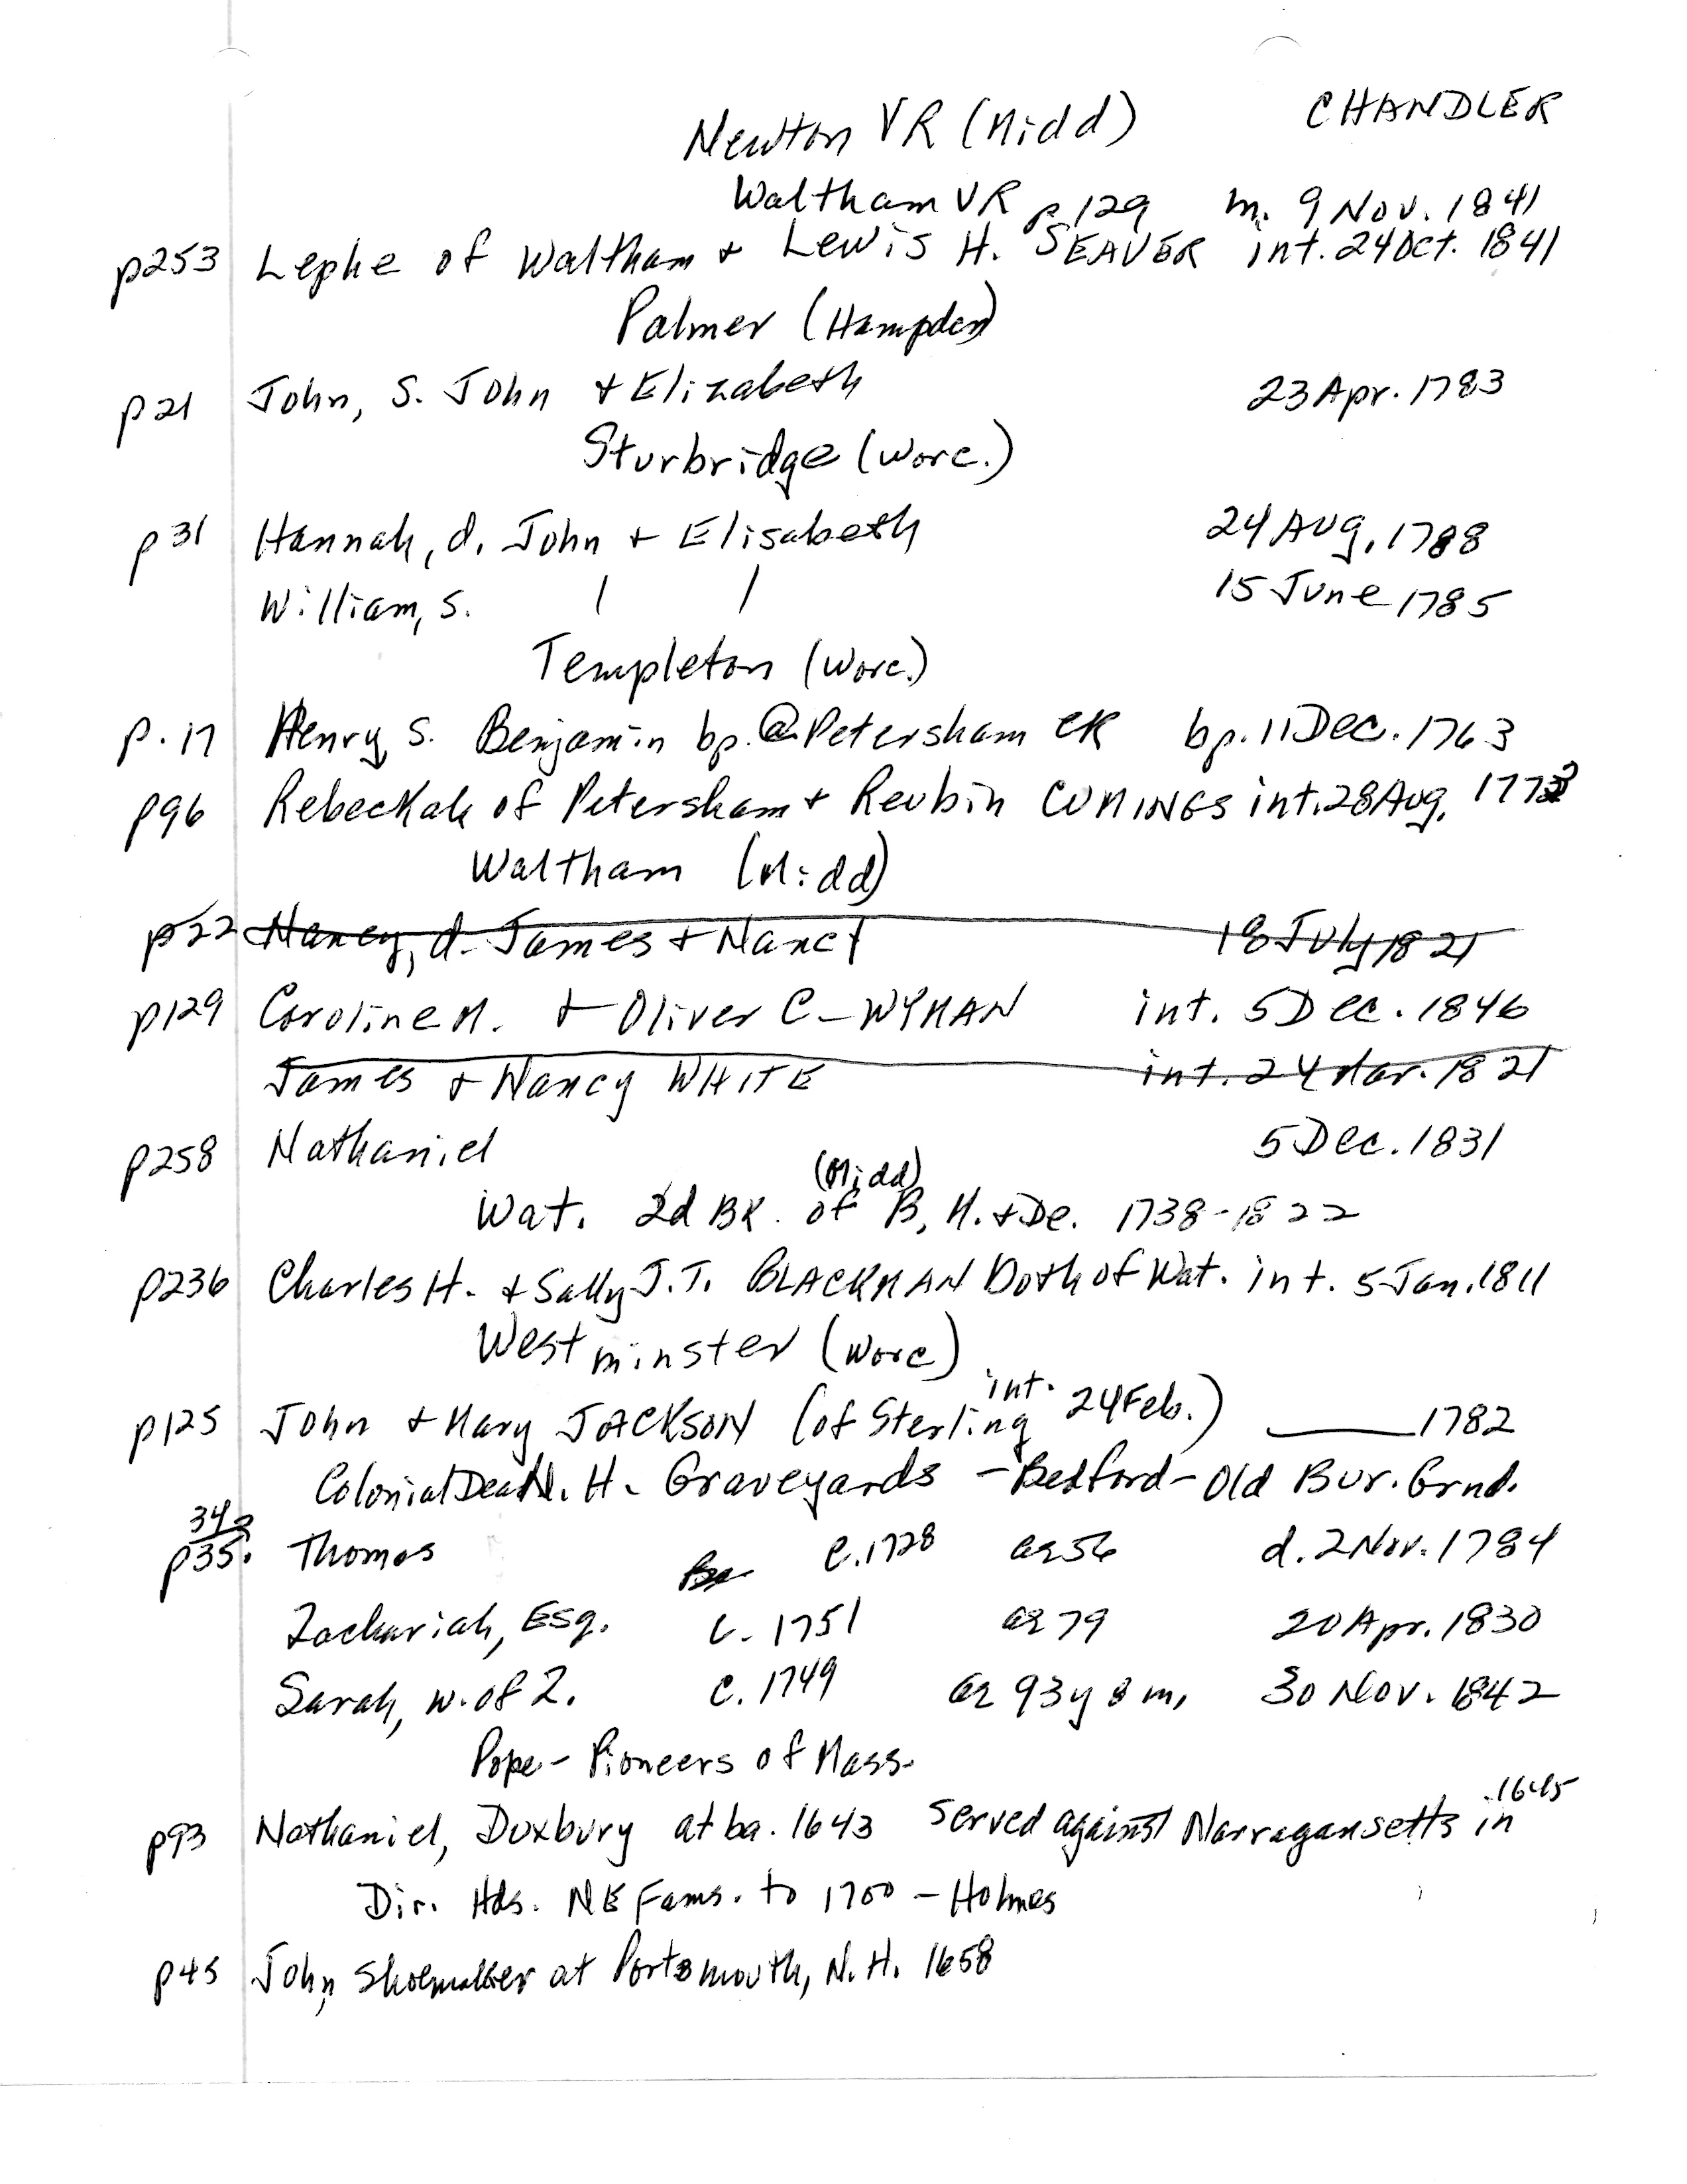 CHANDLER
Newton VR (Midd)
Waltham VR p129 m. 9 Nov. 1841
p253 Lephe of Waltham + Lewis H. SEAVER int. 24 Oct. 1841
Palmer (Hampden)
p21 John, S. John + Elizabeth 23 Apr. 1783
Sturbridge (Worc.)
p31 Hannah, d. John + Elisabeth 24 Aug. 1788
William, S. / / 15 June 1785
Templeton (Worc.)
p. 17 Henry, S. Benjamin bp. @ Petersham CR bp. 11 Dec. 1763
p96 Rebeckah of Petersham + Reubin COMINGS int. 28 Aug.
Waltham (Midd)
p22 Nancy, d. James + Nancy 18 July 1821
p129 Caroline M. + Oliver C. WYMAN int. 5 Dec. 1846
James + Nancy WHITE int. 24 Mar. 1821
p258 Nathaniel 5 Dec. 1831
(Midd)
Wat. 2d BK. of B, M. + De. 1738-1822
p236 Charles H. + Sally J.T. BLACKMAN Both of Wat. int. 5 Jan. 1811
Westminster (Worc)
p125 John + Mary JACKSON (of Sterling int. 24 Feb.) ____ 1782
Colonial Dead N.H. Graveyards - Bedford - Old Bur. Grnd.
342
p35. Thomas c. 1728 ae 56 d. 2 Nov. 1784
Zachariah, Esq. c. 1751 ae 79 20 Apr. 1830
Sarah, w. of Z. c. 1749 ae 93y 8m, 30 Nov. 1842
Pope - Pioneers of Mass.
p93 Nathaniel, Duxbury atba. 1643 served against Narragansetts in 1645
Dir. Hds. NE Fams. to 1700 - Holmes
p45 John, shoemaker at Portsmouth, N.H. 1658